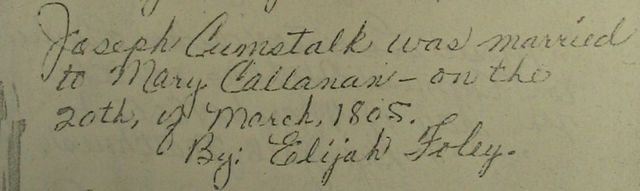 Joseph Cumstalk was married
to Mary Callanan - on the
20th, of March, 1805.
By: Elijah Foley.